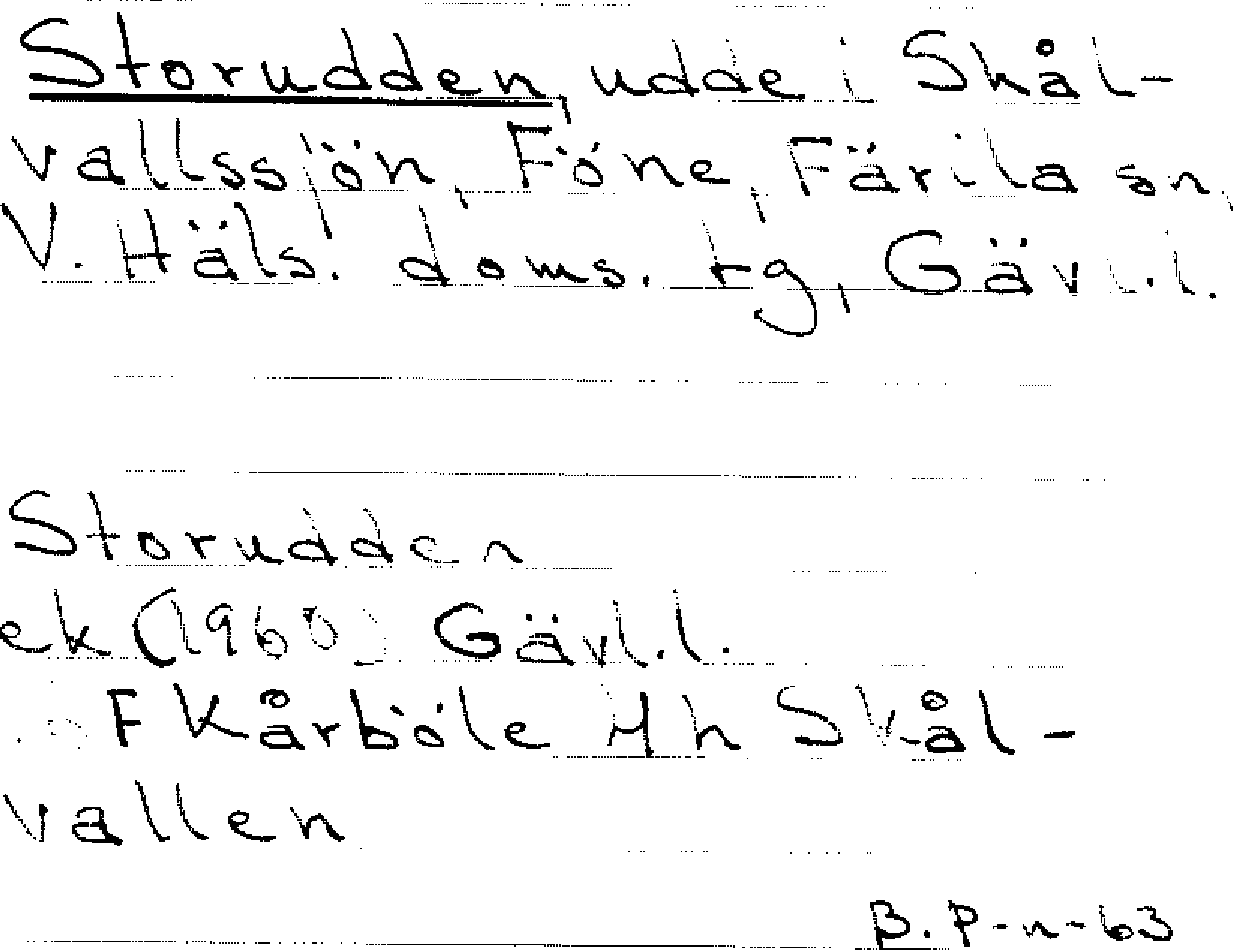 Storudden, udde i Skål-
vallssjön, Föne, Färila sn,
V. Häls. doms. tg, Gävl.l.
Storudden
ek (1960) Gävl.l.
F Kårböle Hh Skål-
vallen
B.P-n-63